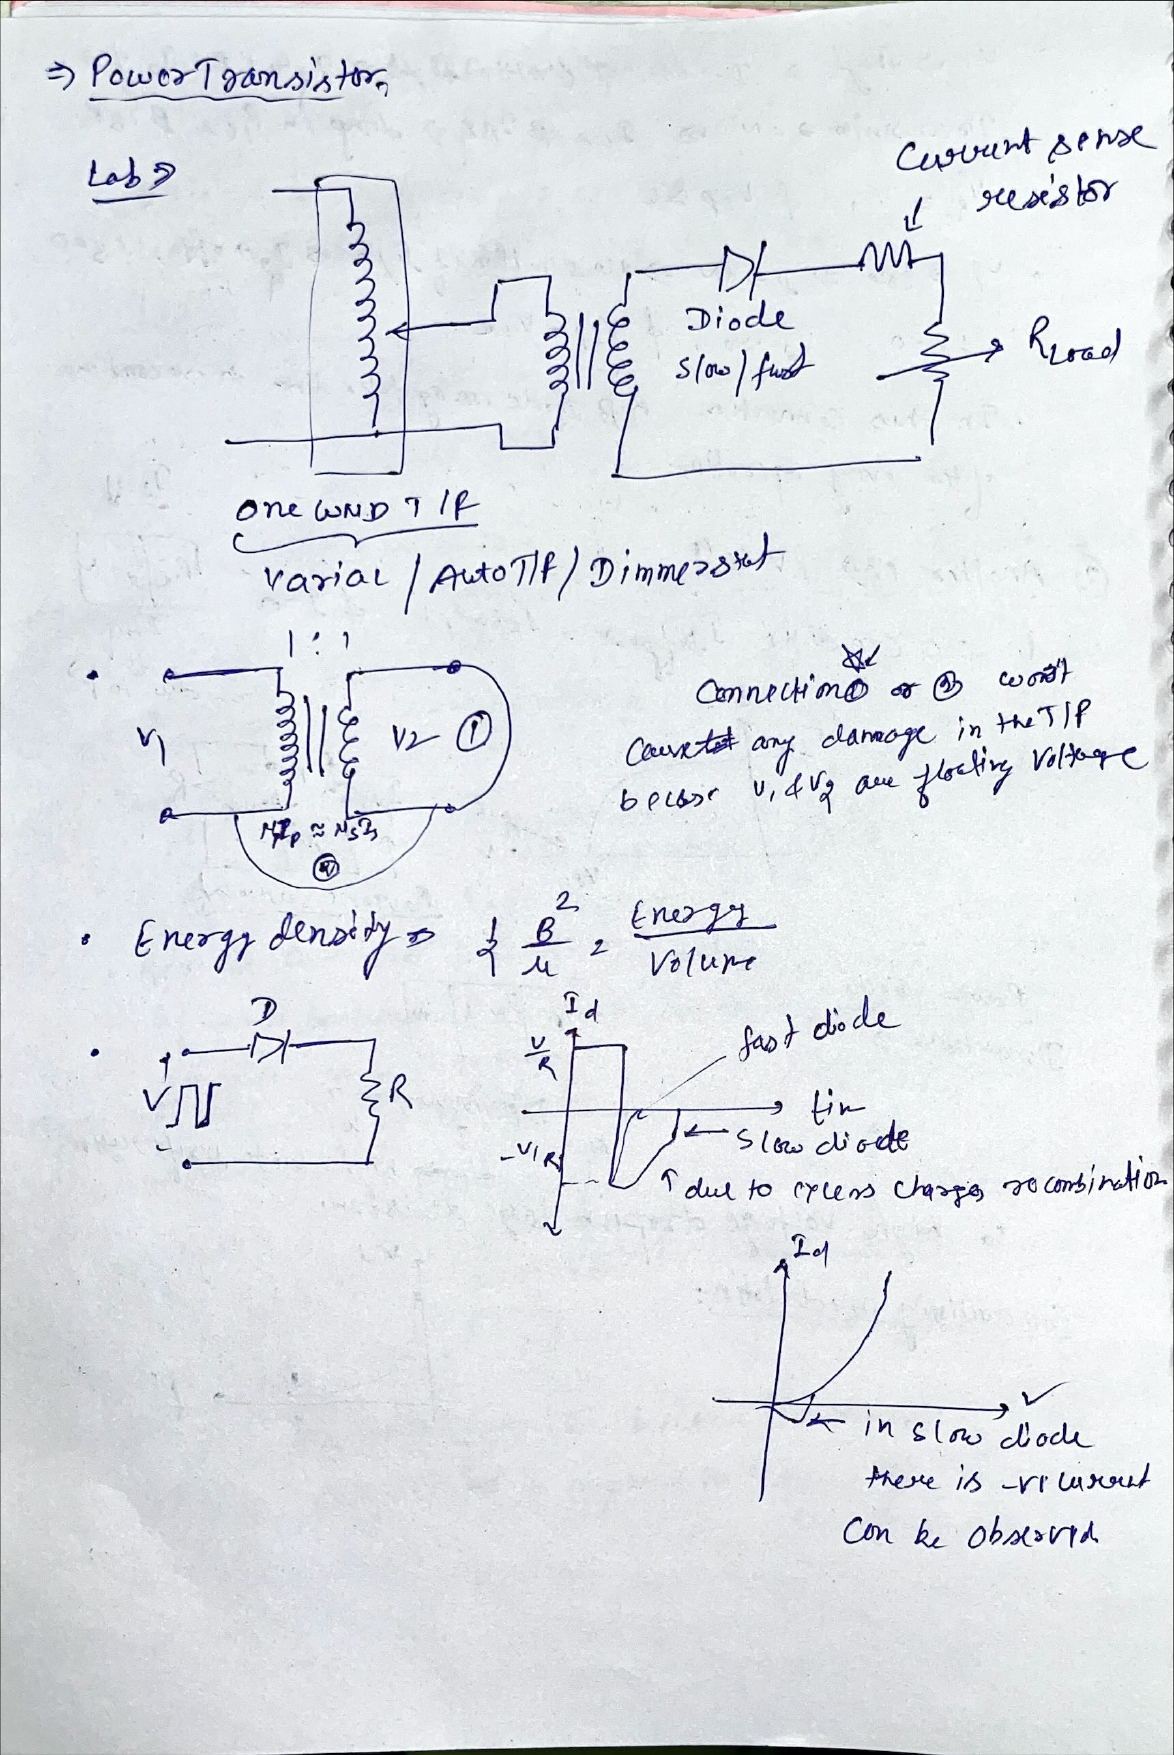 ⇒ Power Transistor
Lab ⇒
Current sense
resistor
Diode
slow/fast
RLoad
One WND T/F
Variac / Auto T/F / Dimmerstat
1 : 1
V1
V2 ①
NpIp ≈ NsIs
②
Connection ① or ② won't
Cause any damage in the T/F
because V1 & V2 are floating voltage
• Energy density ⇒ 1/2 B²/μ = Energy/Volume
D
V
R
+
-
Id
V/R
-V/R
fast diode
slow diode
↑ due to excess charges recombination
Id
V
← in slow diode
there is -ve current
Can be observed